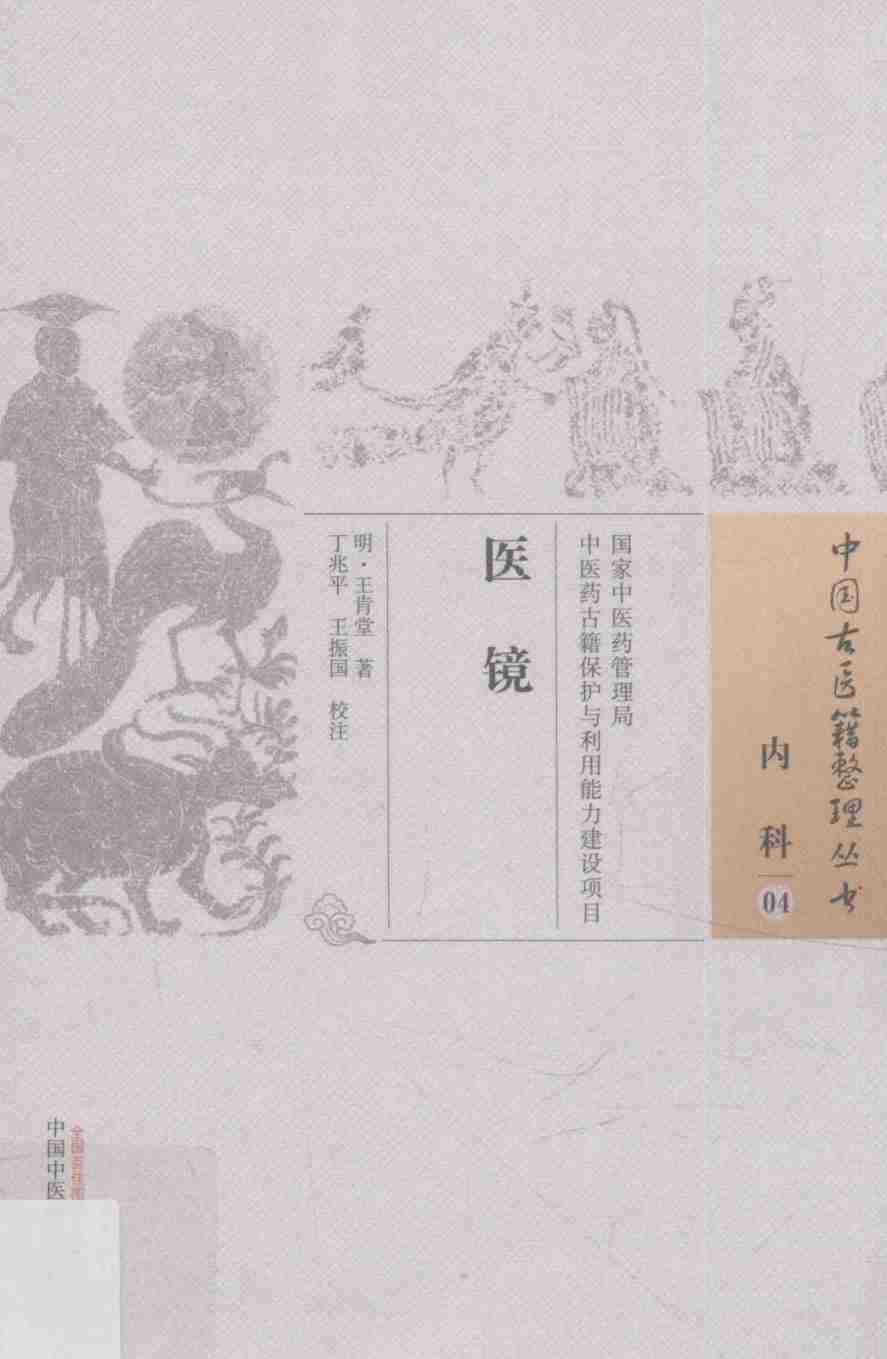 中国古医籍整理丛书
内科
04
国家中医药管理局
中医药古籍保护与利用能力建设项目
医镜
明·王肯堂 著
丁兆平 王振国 校注
全国百佳图
中国中医